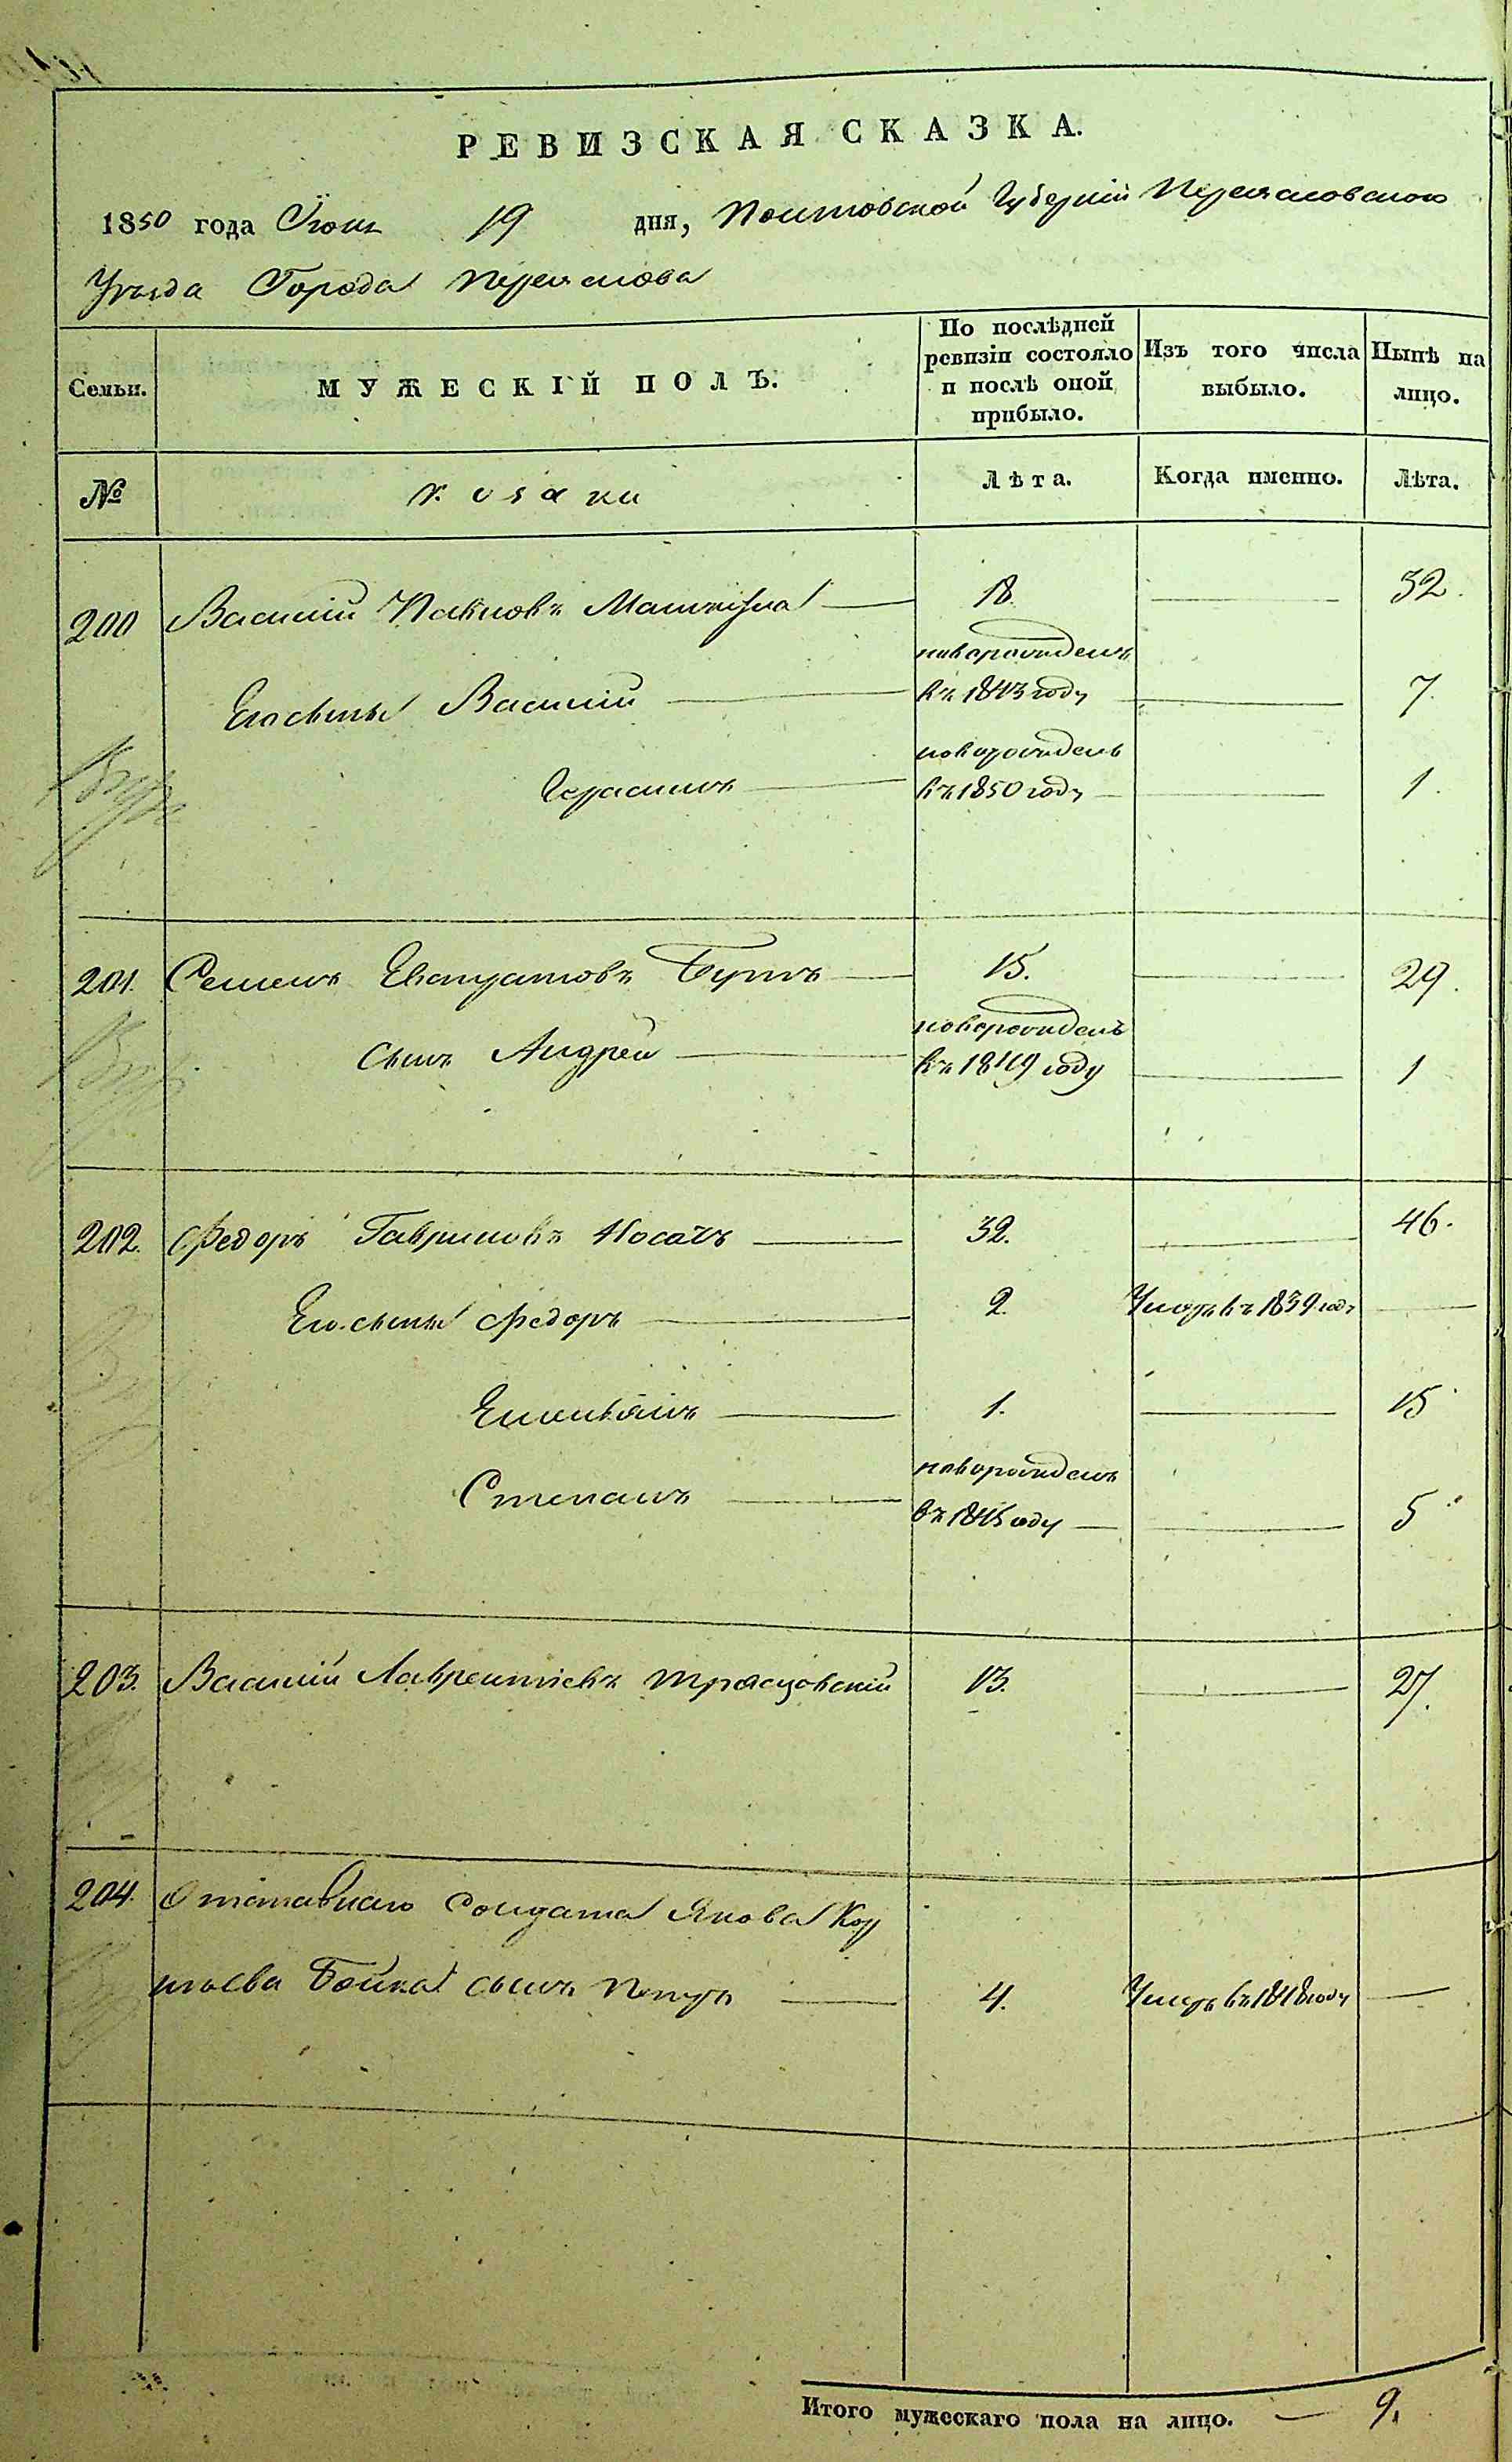 РЕВИЗСКАЯ СКАЗКА.
1850 года Июня 19 дня, Полтавской Губерніи Переяславского
Уѣзда Города Переяслова
Семьи.
МУЖЕСКІЙ ПОЛЪ.
По послѣдней
ревизіи состояло
и послѣ оной
прибыло.
Изъ того числа
выбыло.
Нынѣ на
лицо.
№
козаки
Лѣта.
Когда именно.
Лѣта.
200 Василій Павловъ 18. 32.
новорожденъ
Его сыны Василій въ 1843 году 7.
новорожденъ
Герасимъ въ 1850 году 1.
201. Семенъ Евстратовъ Бутъ 15. 29.
новорожденъ
сынъ Андрей въ 1849 году 1
202. Федоръ Гавриловъ Носачъ 32. 46.
Его сыны Федоръ 2. Умеръ въ 1839 году
Емельянъ 1. 15
новорожденъ
Степанъ въ 1845 году 5
203. Василій Лаврентіевъ 13. 27.
204. Отставнаго Солдата Якова Кор
нѣева Бойка сынъ Петръ 4. Умеръ въ 1848 году
Итого мужескаго пола на лицо. — 9.